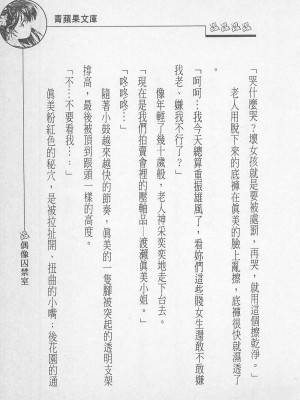 青蘋果文庫
「哭什麼哭？壞女孩就是要被處罰，再哭，就用這個擦乾淨。」
老人用脫下來的底褲在眞美的臉上亂擦，底褲很快就濕透了
。
「呵呵…我今天總算重振雄風了，看妳們這些賤女生還敢不敢嫌
我老、嫌我不行了？」
像年輕了幾十歲般，老人神采奕奕地走下台去。
「現在是我們拍賣會裡的壓軸品—渡瀨眞美小姐。」
「咚咚咚…」
隨著小鼓越來越快的節奏，眞美的一隻腳被突起的透明支架
撐高，最後被頂到跟頭一樣的高度。
「不…不要看我……」
眞美粉紅色的秘穴，是被拉扯開、扭曲的小嘴；後花園的通
偶像囚禁室